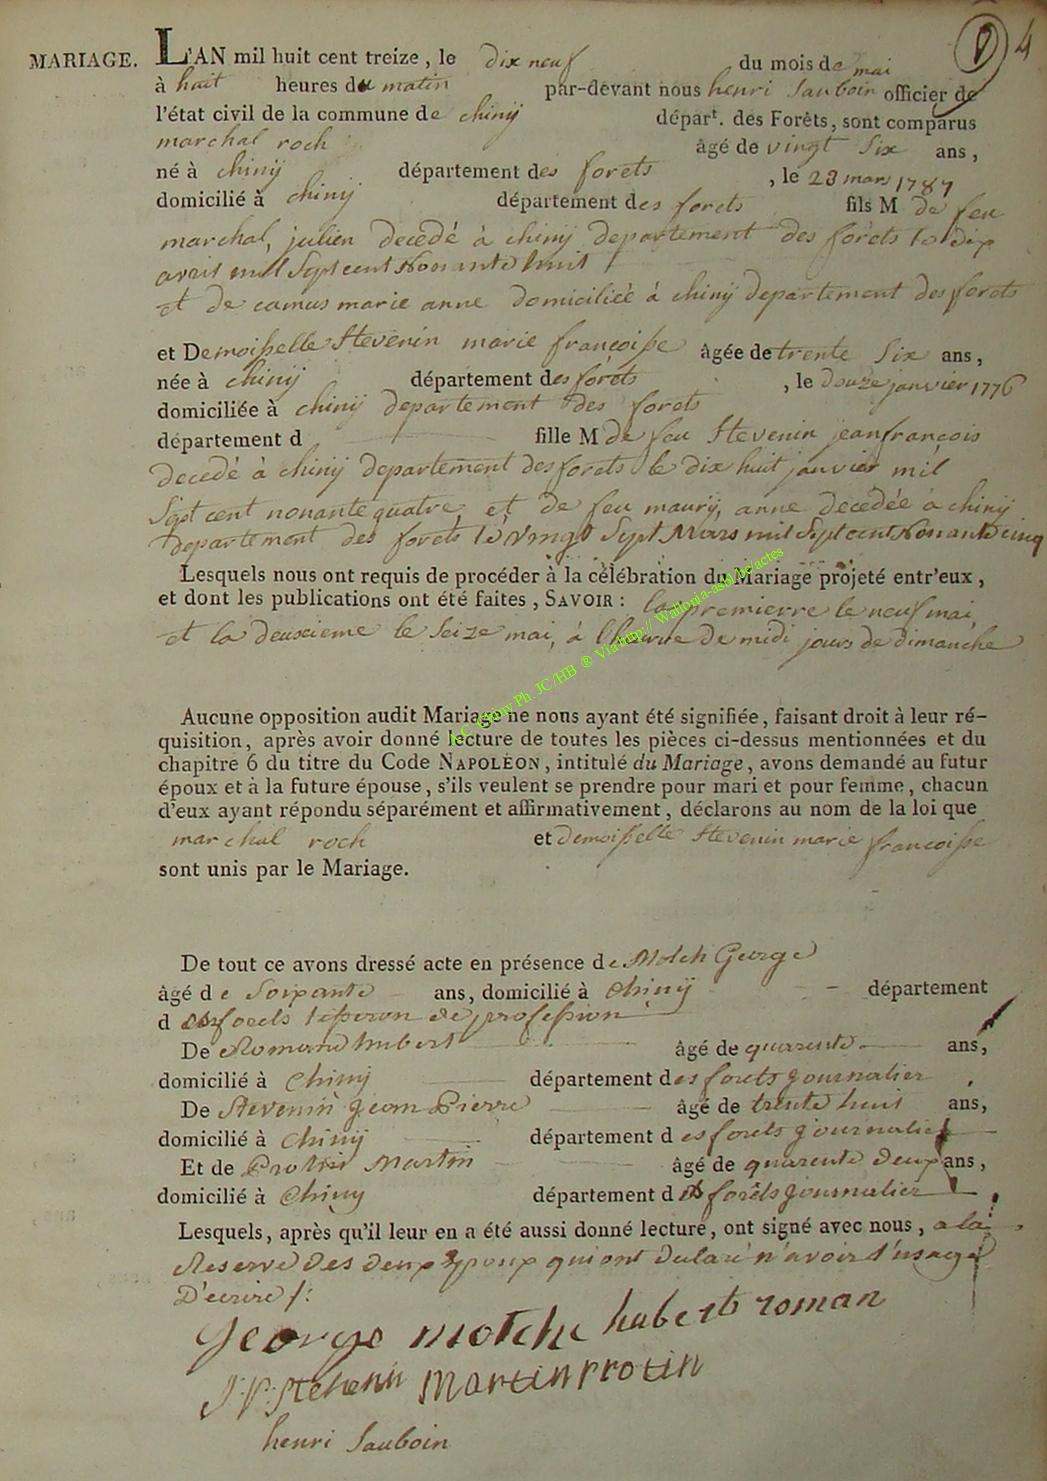 V 4
MARIAGE. L'AN mil huit cent treize, le dix neuf du mois de mai
à huit heures du matin par-devant nous henri Sauboin officier de
l'état civil de la commune de chinÿ départ. des Forêts, sont comparus
marchal roch âgé de vingt Six ans,
né à chinÿ département des forets, le 23 mars 1787
domicilié à chinÿ département des forets fils M de feu
marchal, julien decedé à chinÿ departement des forets le dix
avril mil Sept cent Nonante huit
et de camus marie anne domiciliée à chinÿ departement des forets
et Demoiselle Stevenin marie françoise âgée de trente Six ans,
née à chinÿ département des forets, le douze janvier 1776
domiciliée à chinÿ departement des forets
département d fille M de feu Stevenin jean françois
decedé à chinÿ departement des forets le dix huit janvier mil
Sept cent nonante quatre et de feu maurÿ, anne decedée à chinÿ
departement des forets le Vingt Sept Mars mil Sept cent Nonante cinq
Lesquels nous ont requis de procéder à la célébration du Mariage projeté entr'eux,
et dont les publications ont été faites, SAVOIR : la premierre le neuf mai,
et la deuxcieme le Seize mai, à l'heure de midi jours de dimanche
A.C. Chiny Ph. JC /HB ® Via http:// Wallonia-asbl.be/actes
Aucune opposition audit Mariage ne nous ayant été signifiée, faisant droit à leur ré-
quisition, après avoir donné lecture de toutes les pièces ci-dessus mentionnées et du
chapitre 6 du titre du Code NAPOLÉON, intitulé du Mariage, avons demandé au futur
époux et à la future épouse, s'ils veulent se prendre pour mari et pour femme, chacun
d'eux ayant répondu séparément et affirmativement, déclarons au nom de la loi que
marchal roch et demoiselle Stevenin marie francoise
sont unis par le Mariage.
De tout ce avons dressé acte en présence de Motch George
âgé de Soixante ans, domicilié à Chinÿ département
d des forets de profession
De Roman hubert âgé de quarente ans,
domicilié à Chinÿ département des forets journalier,
De Stevenin jean Pierre âgé de trente huit ans,
domicilié à Chinÿ département des forets journalier
Et de Protin Martin âgé de quarente deux ans,
domicilié à Chiny département des forêts journalier
Lesquels, après qu'il leur en a été aussi donné lecture, ont signé avec nous, a la
Reserve des deux Epoux qui ont declaré n'avoir l'usage
D'ecrire /:
George motch hubert roman
J:P: Stevenin Martin Protin
henri Sauboin